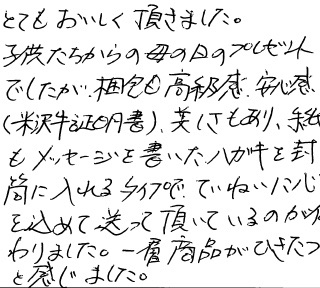 とてもおいしく頂きました。
子供たちからの母の日のプレゼント
でしたが、梱包も高級感、安心感
(米沢牛証明書)、美しさもあり、手紙
もメッセージを書いたハガキを封
筒に入れるタイプで、ていねいに心
を込めて送って頂いているのが伝
わりました。一層商品がひきたつ
と感じました。